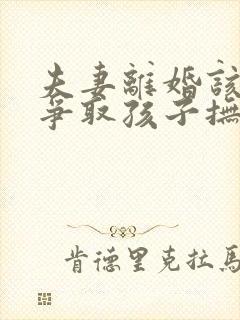 夫妻離婚該
爭取孩子撫
肯德里克拉馬